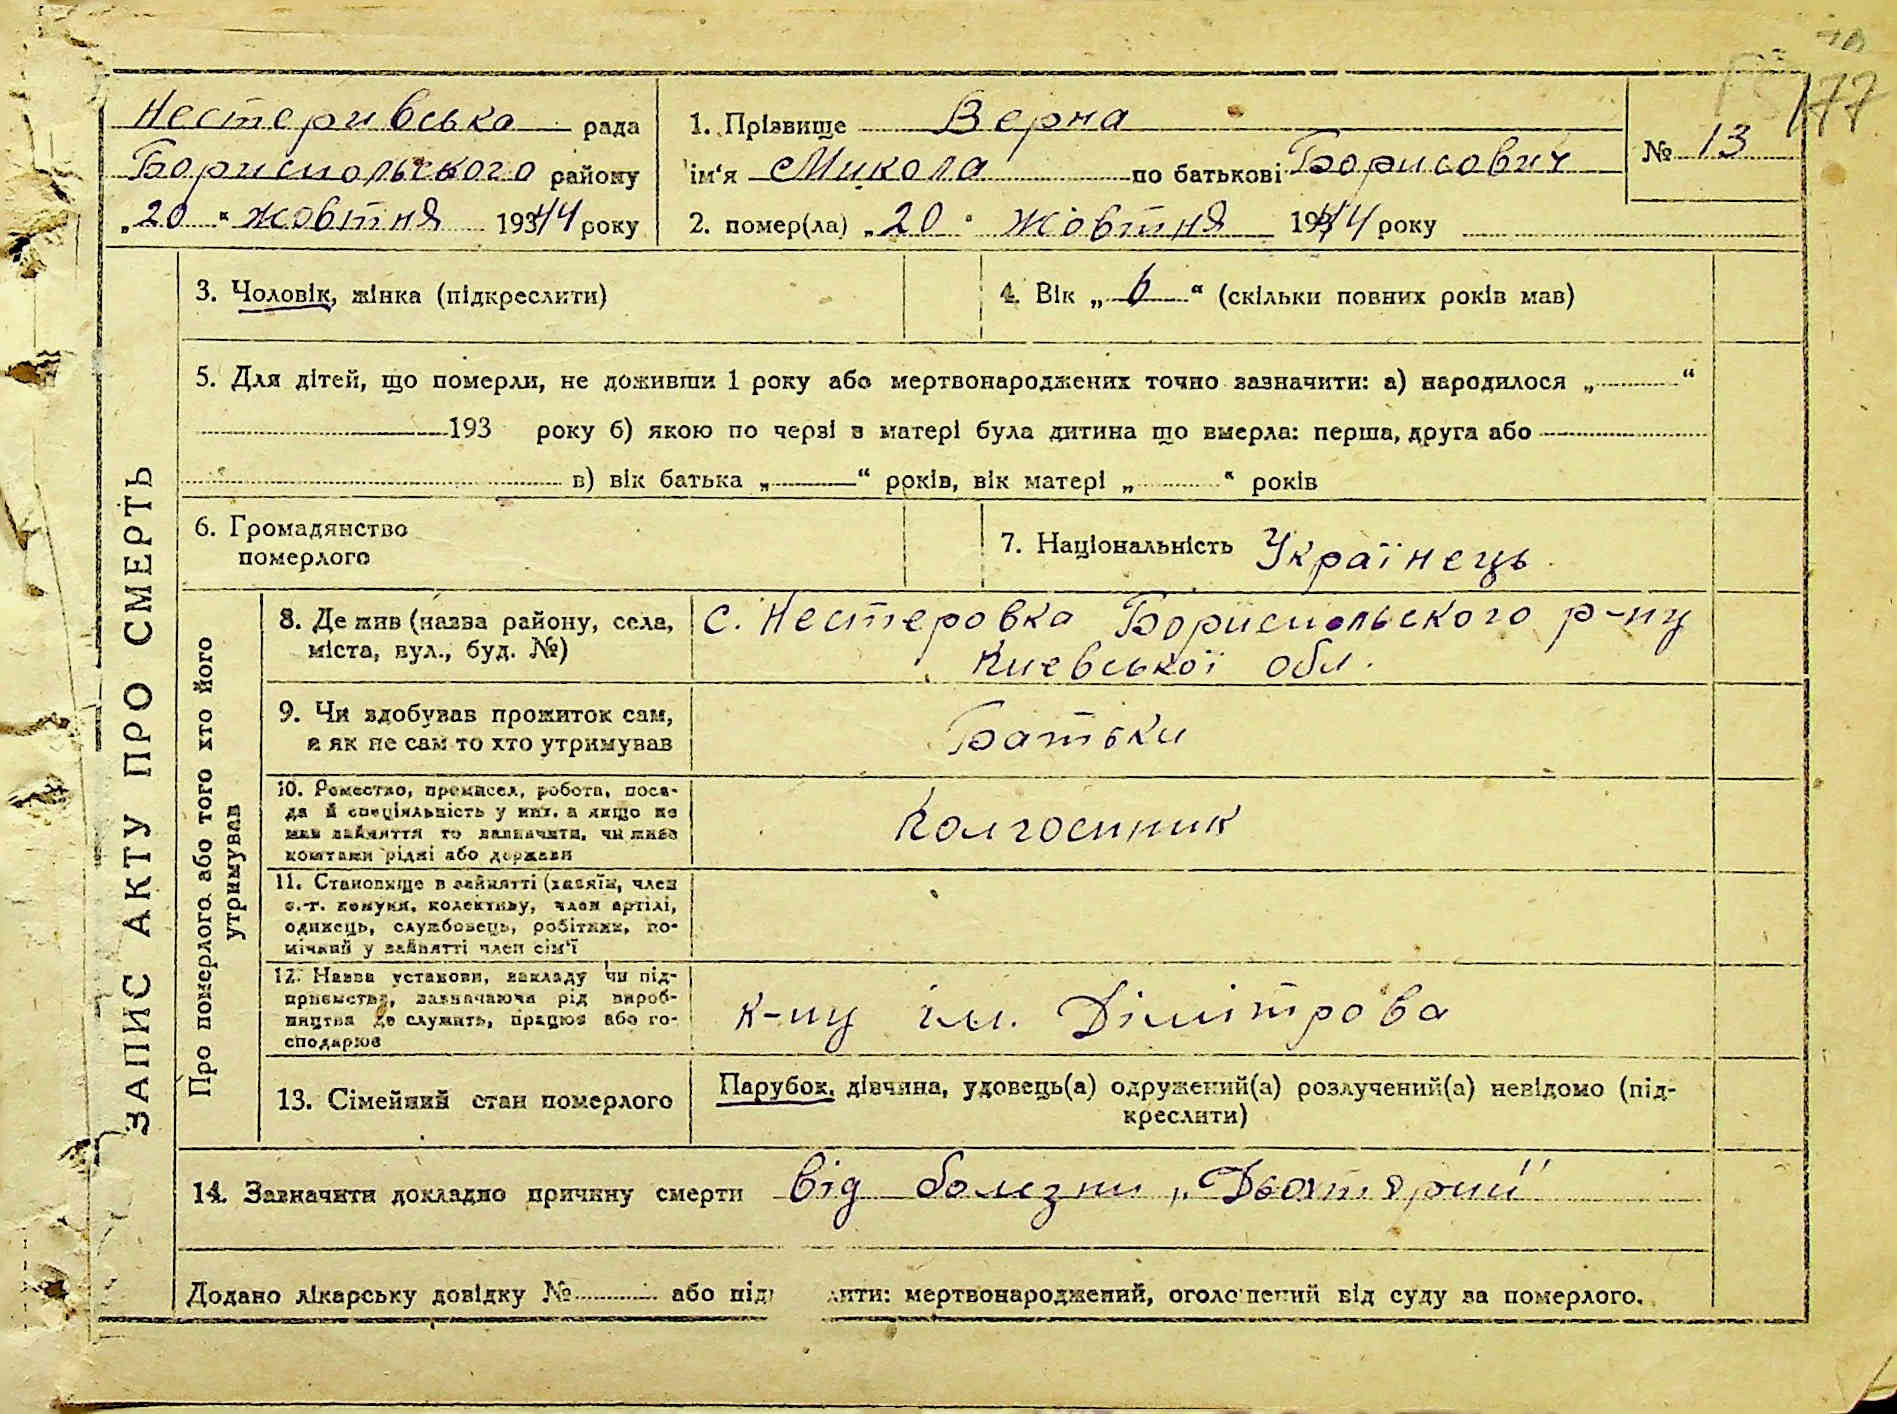 177
Нестеривсько рада
Бориспольського району
„20“ жовтня 1944 року
1. Прізвище Верна
ім'я Микола по батькові Борисович
2. помер(ла) „20“ жовтня 1944 року
№ 13
3. Чоловік, жінка (підкреслити)
4. Вік „6“ (скільки повних років мав)
5. Для дітей, що померли, не доживши 1 року або мертвонароджених точно зазначити: а) народилося „ “
193 року б) якою по черзі в матері була дитина що вмерла: перша, друга або
в) вік батька „ “ років, вік матері „ “ років
6. Громадянство
померлого
7. Національність Українець
ЗАПИС АКТУ ПРО СМЕРТЬ
Про померлого або того хто його
утримував
8. Де жив (назва району, села,
міста, вул., буд. №)
с. Нестеровка Бориспольского р-ну
Киевської обл.
9. Чи здобував прожиток сам,
а як не сам то хто утримував
Батьки
10. Ремество, промисел, робота, поса-
да й спеціяльність у них, а якщо не
мав зайняття то зазначити, чи живе
коштами рідні або держави
Колгоспник
11. Становище в зайнятті (хазяїн, член
с.-г. комуни, колективу, член артілі,
одинець, службовець, робітник, по-
мічний у зайнятті член сім'ї
12. Назва установи, закладу чи під-
приємства, зазначаючи рід вироб-
ництва де служить, працює або го-
сподарює
к-пу ім. Дімітрова
13. Сімейний стан померлого
Парубок, дівчина, удовець(а) одружений(а) розлучений(а) невідомо (під-
креслити)
14. Зазначити докладно причину смерти від болезни
Додано лікарську довідку № або під лити: мертвонароджений, оголошений від суду за померлого.